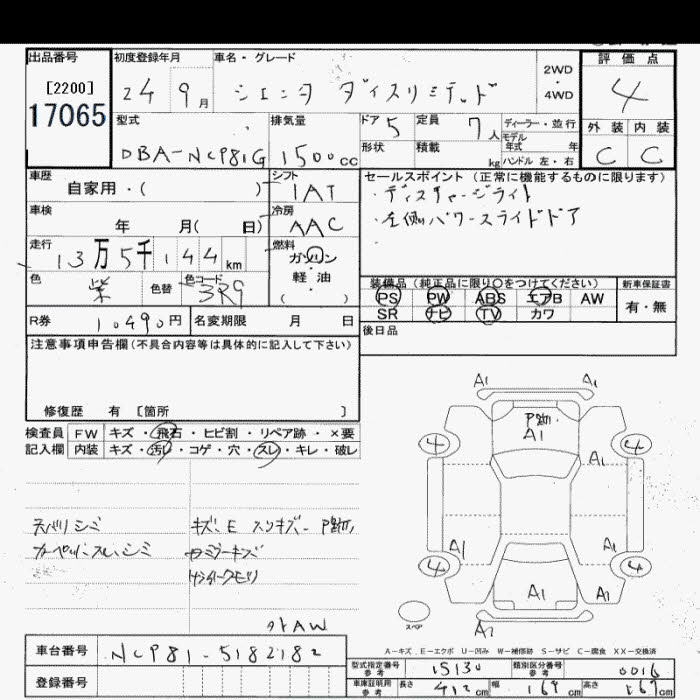 出品番号 初度登録年月 車名・グレード 2WD・4WD 評価点
[2200] 24 9月 シエンタ ダイスリミテッド 4
17065
型式 排気量 ドア 5 定員 7人 ディーラー・並行 外装 内装
モデル年式 年
DBA-NCP81G 1500cc 形状 積載 kg ハンドル 左・右 C C
車歴 シフト セールスポイント (正常に機能するものに限ります)
自家用・( ) IAT ・ディスチャージライト
車検 冷房 ・左側パワースライドドア
年 月( 日) AAC ・
走行 燃料
13万5千144km ガソリン・軽油 ( )
色 色替 色コード 装備品(純正品に限り〇をつけてください) 新車保証書
紫 3R9 PS PW ABS エアB AW 有・無
SR ナビ TV カワ
R券 10490円 名変期限 月 日 後日品
注意事項申告欄(不具合内容等は具体的に記入して下さい)
修復歴 有 [箇所 ]
検査員 FW キズ・飛石・ヒビ割・リペア跡・×要
記入欄 内装 キズ・汚レ・コゲ・穴・スレ・キレ・破レ
天バリシミ
カーペットスレ、シミ
外AW
A1 A1
A1
4 4
A1
A1 A1
4 4
A1 A1
スペア A1
A-キズ、E-エクボ U-凹み W-補修跡 S-サビ C-腐食 XX-交換済
車台番号 NCP81-5182182
型式指定番号 参考 15130 類別区分番号 参考 0016
登録番号
車庫証明用 参考 長さ 412cm 幅 169cm 高さ 167cm